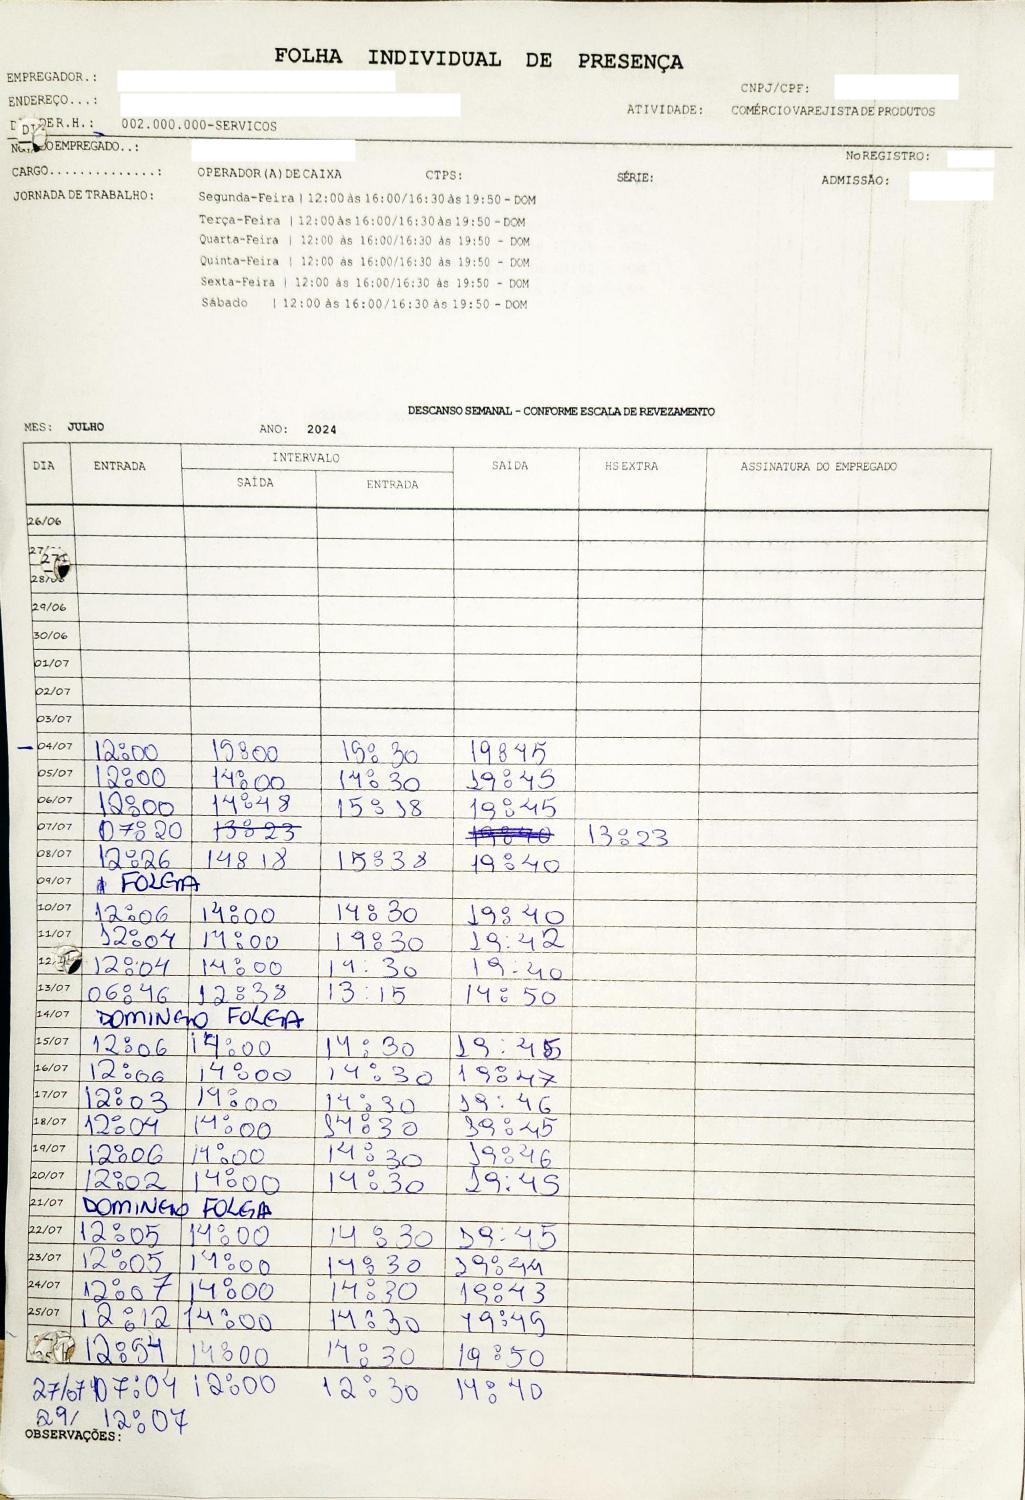 FOLHA INDIVIDUAL DE PRESENÇA
EMPREGADOR.:
CNPJ/CPF:
ENDEREÇO...:
ATIVIDADE: COMÉRCIO VAREJISTA DE PRODUTOS
R.H.: 002.000.000-SERVICOS
EMPREGADO..:
No REGISTRO:
CARGO..............: OPERADOR(A) DE CAIXA CTPS: SÉRIE: ADMISSÃO:
JORNADA DE TRABALHO: Segunda-Feira | 12:00 às 16:00/16:30 às 19:50 - DOM
Terça-Feira | 12:00 às 16:00/16:30 às 19:50 - DOM
Quarta-Feira | 12:00 às 16:00/16:30 às 19:50 - DOM
Quinta-Feira | 12:00 às 16:00/16:30 às 19:50 - DOM
Sexta-Feira | 12:00 às 16:00/16:30 às 19:50 - DOM
Sábado | 12:00 às 16:00/16:30 às 19:50 - DOM
DESCANSO SEMANAL - CONFORME ESCALA DE REVEZAMENTO
MES: JULHO ANO: 2024
DIA ENTRADA INTERVALO SAÍDA HS EXTRA ASSINATURA DO EMPREGADO
SAÍDA ENTRADA
26/06
27
28/06
29/06
30/06
01/07
02/07
03/07
04/07 12:00 15:00 15:30 19:45
05/07 12:00 14:00 14:30 19:45
06/07 12:00 14:48 15:18 19:45
07/07 07:20 13:23 19:40 13:23
08/07 12:26 14:18 15:38 19:40
09/07 FOLGA
10/07 12:06 14:00 14:30 19:40
11/07 12:04 14:00 19:30 19:42
12/ 12:04 14:00 14:30 19:40
13/07 06:46 12:38 13:15 14:50
14/07 DOMINGO FOLGA
15/07 12:06 14:00 14:30 19:45
16/07 12:06 14:00 14:30 19:47
17/07 12:03 14:00 14:30 19:46
18/07 12:04 14:00 14:30 19:45
19/07 12:06 14:00 14:30 19:46
20/07 12:02 14:00 14:30 19:45
21/07 DOMINGO FOLGA
22/07 12:05 14:00 14:30 19:45
23/07 12:05 14:00 14:30 19:44
24/07 12:07 14:00 14:30 19:43
25/07 12:12 14:00 14:30 19:45
12:54 14:00 14:30 19:50
27/07 07:04 12:00 12:30 14:40
29/ 12:07
OBSERVAÇÕES: